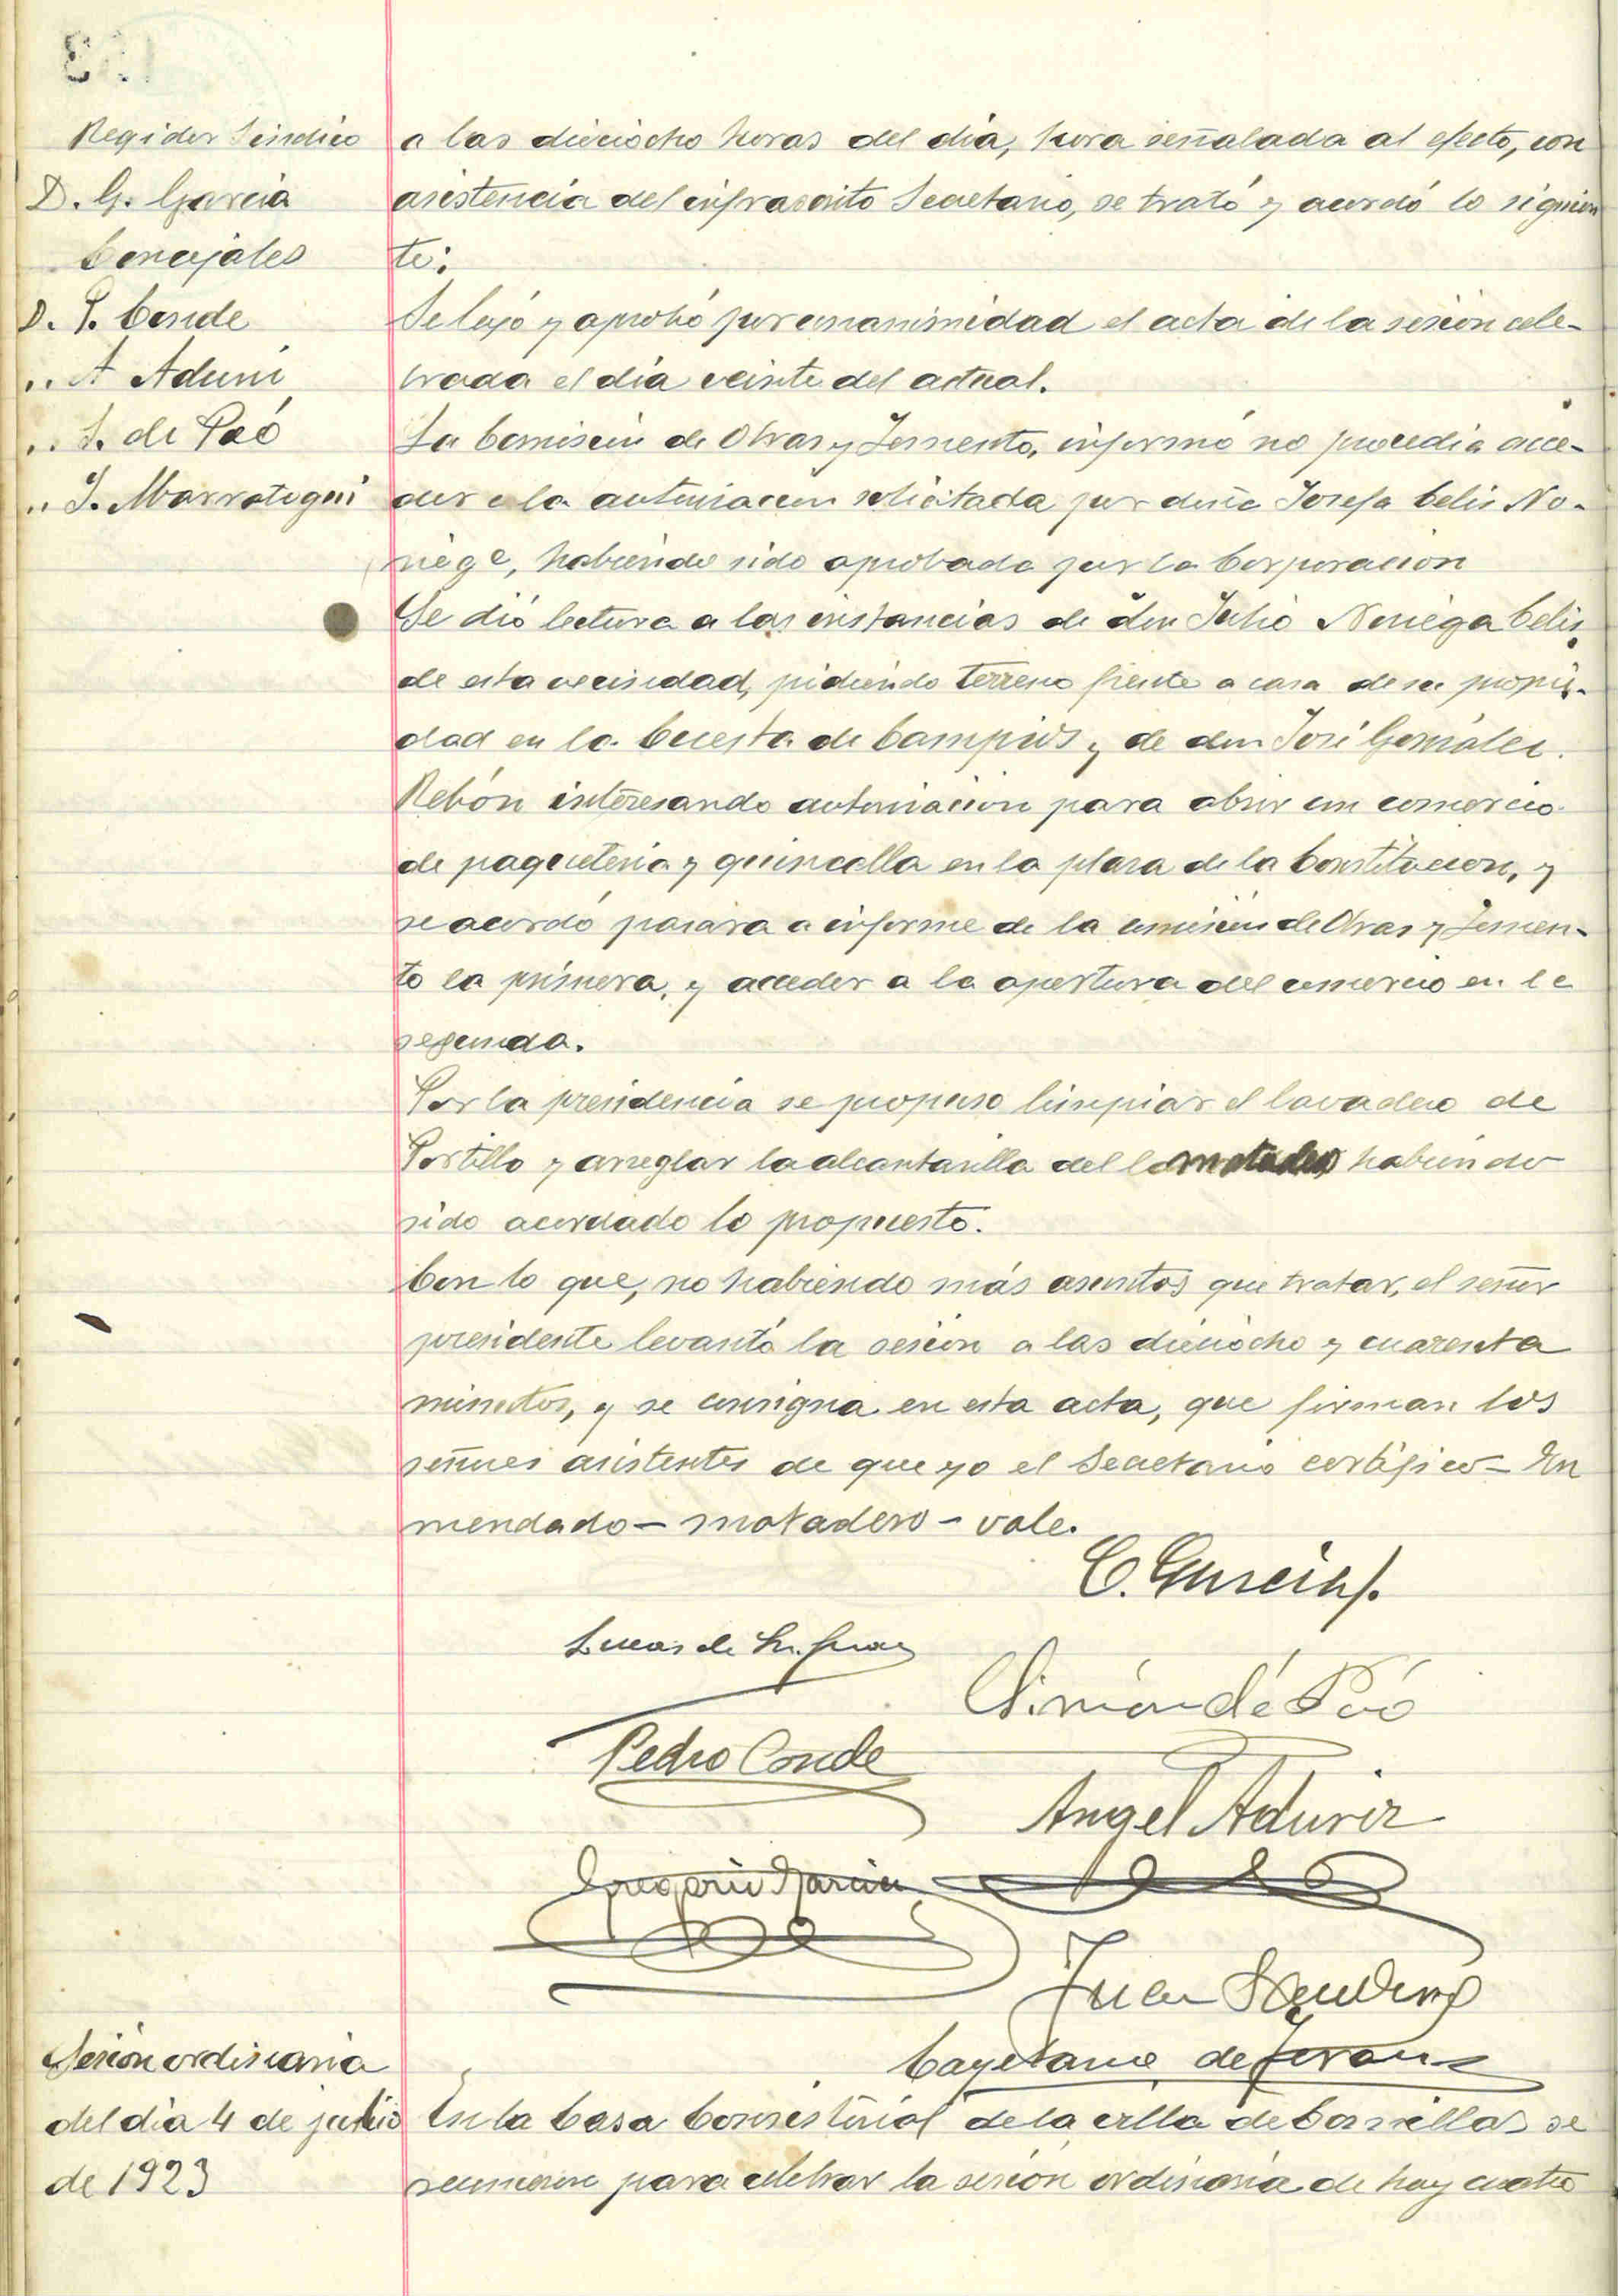 Regidor Síndico
D. G. Garcia
Concejales
D. P. Conde
.. A Aduriz
.. S. de Poó
.. J. Marrotegui
a las dieciocho horas del dia, hora señalada al efecto, con
asistencia del infrascrito Secretario, se trató y acordó lo siguien
te:
Se leyó y aprobó por unanimidad el acta de la sesión cele-
brada el día veinte del actual.
La Comisión de Obras y Fomento, informó no procedia acce-
der a la autorizacion solicitada por doña Josefa Celis No-
riega, habiendo sido aprobada por la Corporacion
Se dió lectura a las instancias de don Julio Noriega Celis,
de esta vecindad, pidiendo terreno frente a casa de su propie-
dad en la Cuesta de Campios y de don José González
Rebón interesando autorizacion para abrir un comercio
de paqueteria y quincalla en la plaza de la Constitucion, y
se acordó pasara a informe de la comisión de Obras y Fomen-
to la primera, y acceder a la apertura del comercio en la
segunda.
Por la presidencia se propuso limpiar el lavadero de
Portillo y arreglar la alcantarilla del matadero habiendo
sido acordado lo propuesto.
Con lo que, no habiendo más asuntos que tratar, el señor
presidente levantó la sesión a las dieciocho y cuarenta
minutos, y se consigna en esta acta, que firman los
señores asistentes de que yo el Secretario certifico - En
mendado - matadero - vale.
C. Garcia
Lucas de
Simón de Poó
Pedro Conde
Angel Aduriz
Gregorio Garcia
Juan
Cayetano de
Sesión ordinaria
del dia 4 de julio
de 1923
En la Casa Consistorial de la villa de Comillas se
reunieron para celebrar la sesión ordinaria de hoy cuatro